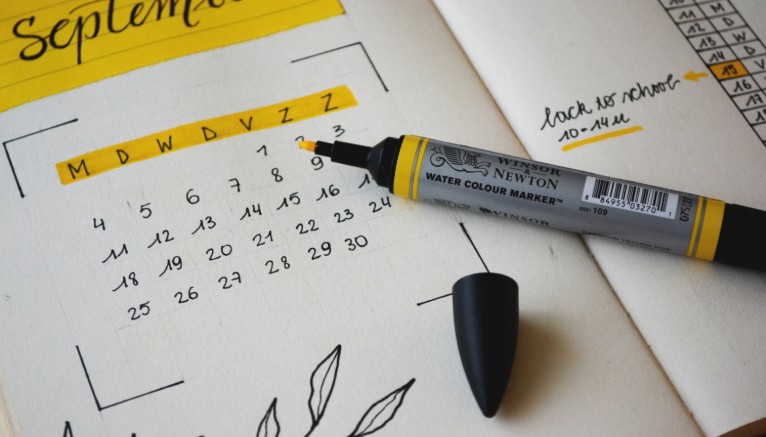 September
M D W D V Z Z
1 2 3
4 5 6 7 8 9
11 12 13 14 15 16
18 19 20 21 22 23 24
25 26 27 28 29 30
WINSOR
& NEWTON
WATER COLOUR MARKER™
WINSOR
109
84955 03270 1
back to school
10-14u
11 M
12 D
13 W
14 D
15 V
16 Z
17